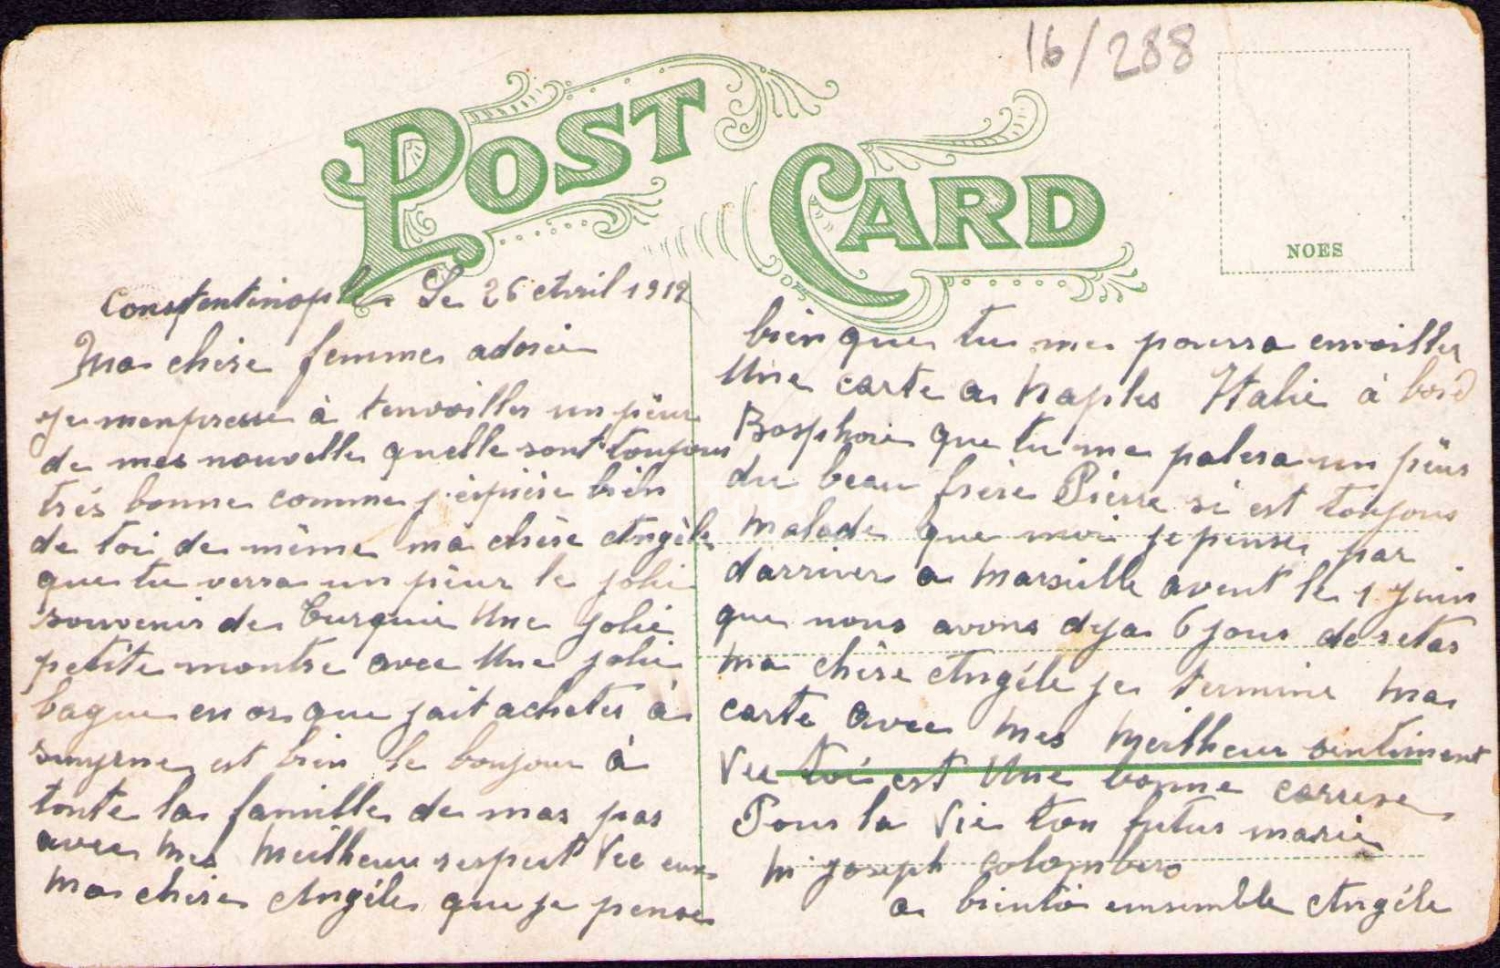 16/288
POST CARD
NOES
Constentinople Le 26 Avril 1919
Ma chère femme adorée
Je menpresse à tenvoiller un pëur
de mes nouvelle quelle sont toujours
très bonne comme j'éspière bien
de toi de même ma chère Angèle
que tu verra un pëur le jolie
souvenir de Turquie Une jolie
petite montre avec Une jolie
bague en or que jait acheter à
Smyrne est bien le bonjour à
toute la famille de mas pas
avec mes meilheur respect Vec eux
Ma chère Angéle que je pense
bien que tu me pourra envoiller
Une carte a Naples Italie à bord
Bosphore que tu me palera un pëur
du beau frère Pièrre si est toujours
malade que moi je pense par
darriver a Marseille avent le 1 Juin
que nous avons deja 6 jour de retar
Ma chère Angéle je termine Ma
carte avec mes meilheur sentiment
Vec toi est Une bonne caresse
Pour la Vie ton futur marie
M joseph Colombero
a biento ensemble Angéle